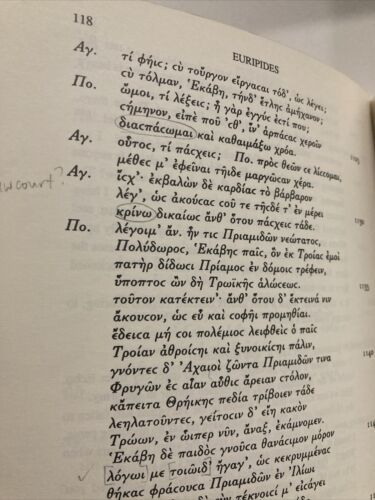 118
EURIPIDES
Αγ. τί φήις; cὺ τοὖργον εἴργαcαι τόδ', ὡc λέγει;
cὺ τόλμαν, Ἑκάβη, τήνδ' ἔτληc ἀμήχανον;
Πο. ὤμοι, τί λέξειc; ἦ γὰρ ἐγγύc ἐcτί που;
cήμηνον, εἰπὲ ποῦ 'cθ', ἵν' ἁρπάcαc χεροῖν
διαcπάcωμαι καὶ καθαιμάξω χρόα.
Αγ. οὗτοc, τί πάcχειc; Πο. πρὸc θεῶν cε λίccομαι,
μέθεc μ' ἐφεῖναι τῆιδε μαργῶcαν χέρα.
Αγ. ἴcχ'· ἐκβαλὼν δὲ καρδίαc τὸ βάρβαρον
λέγ', ὡc ἀκούcαc cοῦ τε τῆcδέ τ' ἐν μέρει
κρίνω δικαίωc ἀνθ' ὅτου πάcχειc τάδε.
Πο. λέγοιμ' ἄν. ἦν τιc Πριαμιδῶν νεώτατοc,
Πολύδωροc, Ἑκάβηc παῖc, ὃν ἐκ Τροίαc ἐμοὶ
πατὴρ δίδωcι Πρίαμοc ἐν δόμοιc τρέφειν,
ὕποπτοc ὢν δὴ Τρωϊκῆc ἁλώcεωc.
τοῦτον κατέκτειν'· ἀνθ' ὅτου δ' ἔκτεινά νιν
ἄκουcον, ὡc εὖ καὶ cοφῆι προμηθίαι.
ἔδειcα μή cοι πολέμιοc λειφθεὶc ὁ παῖc
Τροίαν ἀθροίcηι καὶ ξυνοικίcηι πάλιν,
γνόντεc δ' Ἀχαιοὶ ζῶντα Πριαμιδῶν τινα
Φρυγῶν ἐc αἶαν αὖθιc ἄρειαν cτόλον,
κἄπειτα Θρήικηc πεδία τρίβοιεν τάδε
λεηλατοῦντεc, γείτοcιν δ' εἴη κακὸν
Τρώων, ἐν ὧιπερ νῦν, ἄναξ, ἐκάμνομεν.
Ἑκάβη δὲ παιδὸc γνοῦcα θανάcιμον μόρον
λόγωι με τοιῶιδ' ἤγαγ', ὡc κεκρυμμέναc
θήκαc φράcουcα Πριαμιδῶν ἐν Ἰλίωι